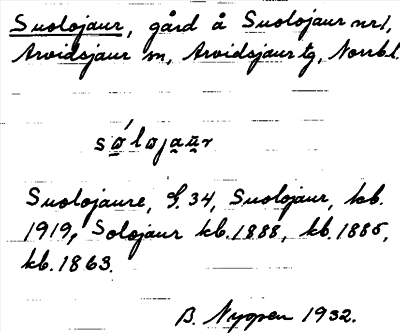 Suolojaur, gård å Suolojaur nr 1,
Arvidsjaur sn, Arvidsjaur tg, Norrb.l.
sólojaur
Suolojaure, G. 34, Suolojaur, kb.
1919, Solojaur kb. 1888, kb. 1885,
kb. 1863.
B. Nygren 1932.